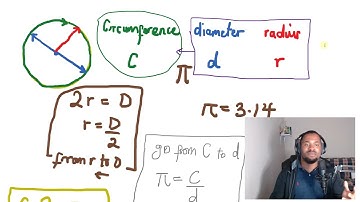 Circumference
C
diameter radius
d r
π
2r = D
r = D/2
from r to D
π = 3.14
go from C to d
π = C/d